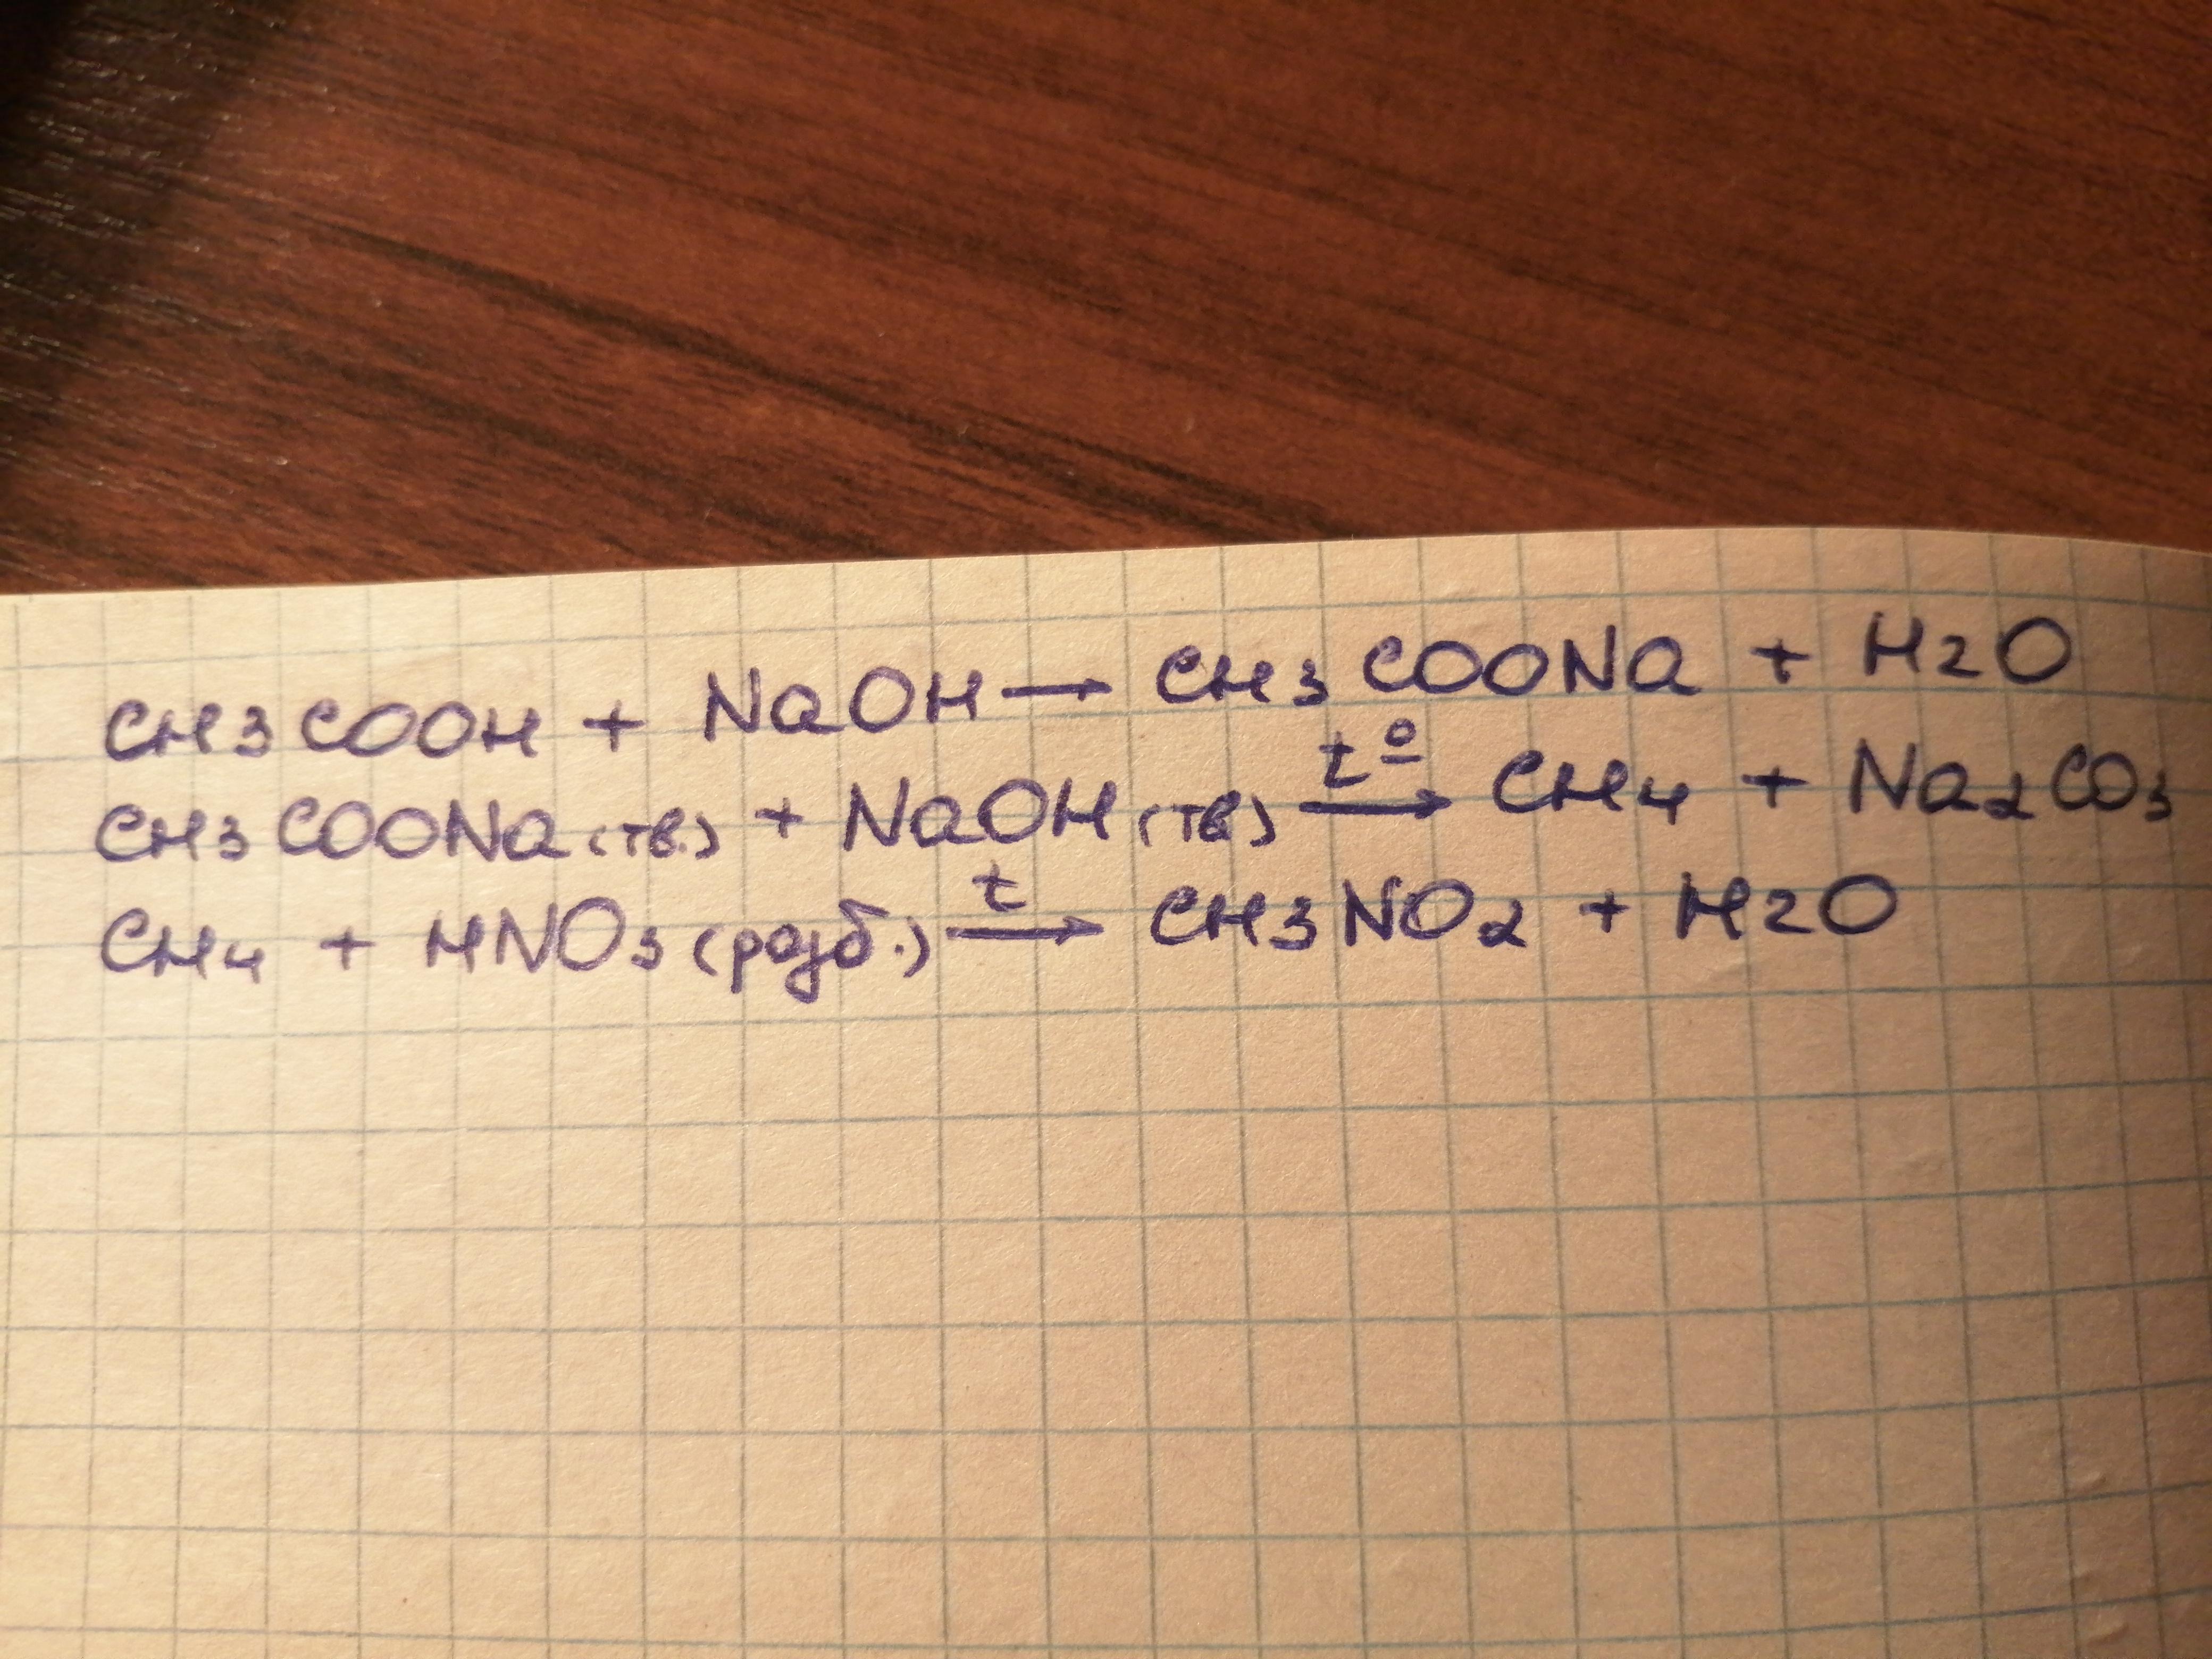 CH3COOH + NaOH → CH3COONa + H2O
CH3COONa (тв.) + NaOH (тв) t° → CH4 + Na2CO3
CH4 + HNO3 (розб.) t → CH3NO2 + H2O